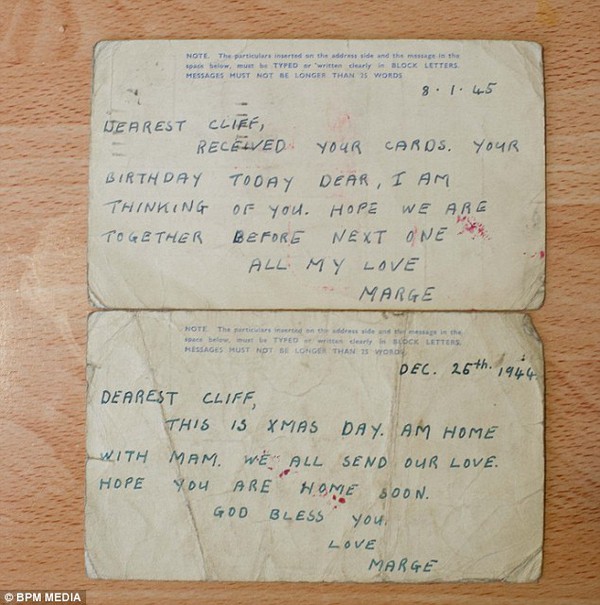 NOTE. The particulars inserted on the address side and the message in the
space below, must be TYPED or written clearly in BLOCK LETTERS.
MESSAGES MUST NOT BE LONGER THAN 25 WORDS
8.1.45
DEAREST CLIFF,
RECEIVED YOUR CARDS. YOUR
BIRTHDAY TODAY DEAR, I AM
THINKING OF YOU. HOPE WE ARE
TOGETHER BEFORE NEXT ONE
ALL MY LOVE
MARGE
NOTE. The particulars inserted on the address side and the message in the
space below, must be TYPED or written clearly in BLOCK LETTERS.
MESSAGES MUST NOT BE LONGER THAN 25 WORDS
DEC. 25th. 1944.
DEAREST CLIFF,
THIS IS XMAS DAY. AM HOME
WITH MAM. WE ALL SEND OUR LOVE.
HOPE YOU ARE HOME SOON.
GOD BLESS YOU.
LOVE
MARGE
© BPM MEDIA